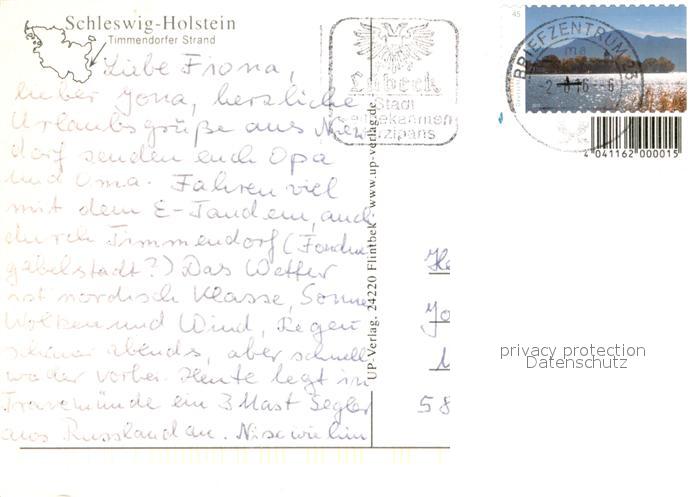 Schleswig-Holstein
Timmendorfer Strand
Liebe Fiona,
lieber Jona, herzliche
Urlaubsgrüße aus Nien
dorf senden euch Opa
und Oma. Fahren viel
mit dem E-Tandem, auch
durch Timmendorf (
gabelstadt?) Das Wetter
ist nordisch Klasse, Sonne
Wolken und Wind, Regen
abends, aber schnell
wieder vorbei. Heute legt in
Travemünde ein 3 Mast Segler
aus Russland an.
UP-Verlag, 24220 Flintbek · www.up-verlag.de
Lübeck
Stadt
Marzipans
45
BRIEFZENTRUM 23
ma
4 041162 000015
58
privacy protection
Datenschutz